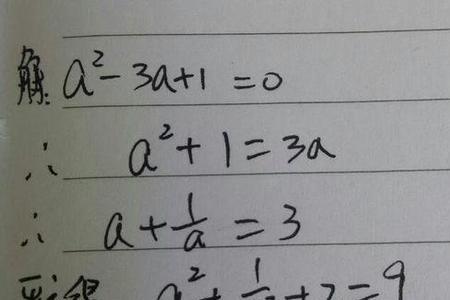 解: a²-3a+1=0
∴ a²+1=3a
∴ a+1/a=3
平方得 a²+1/a²+2=9